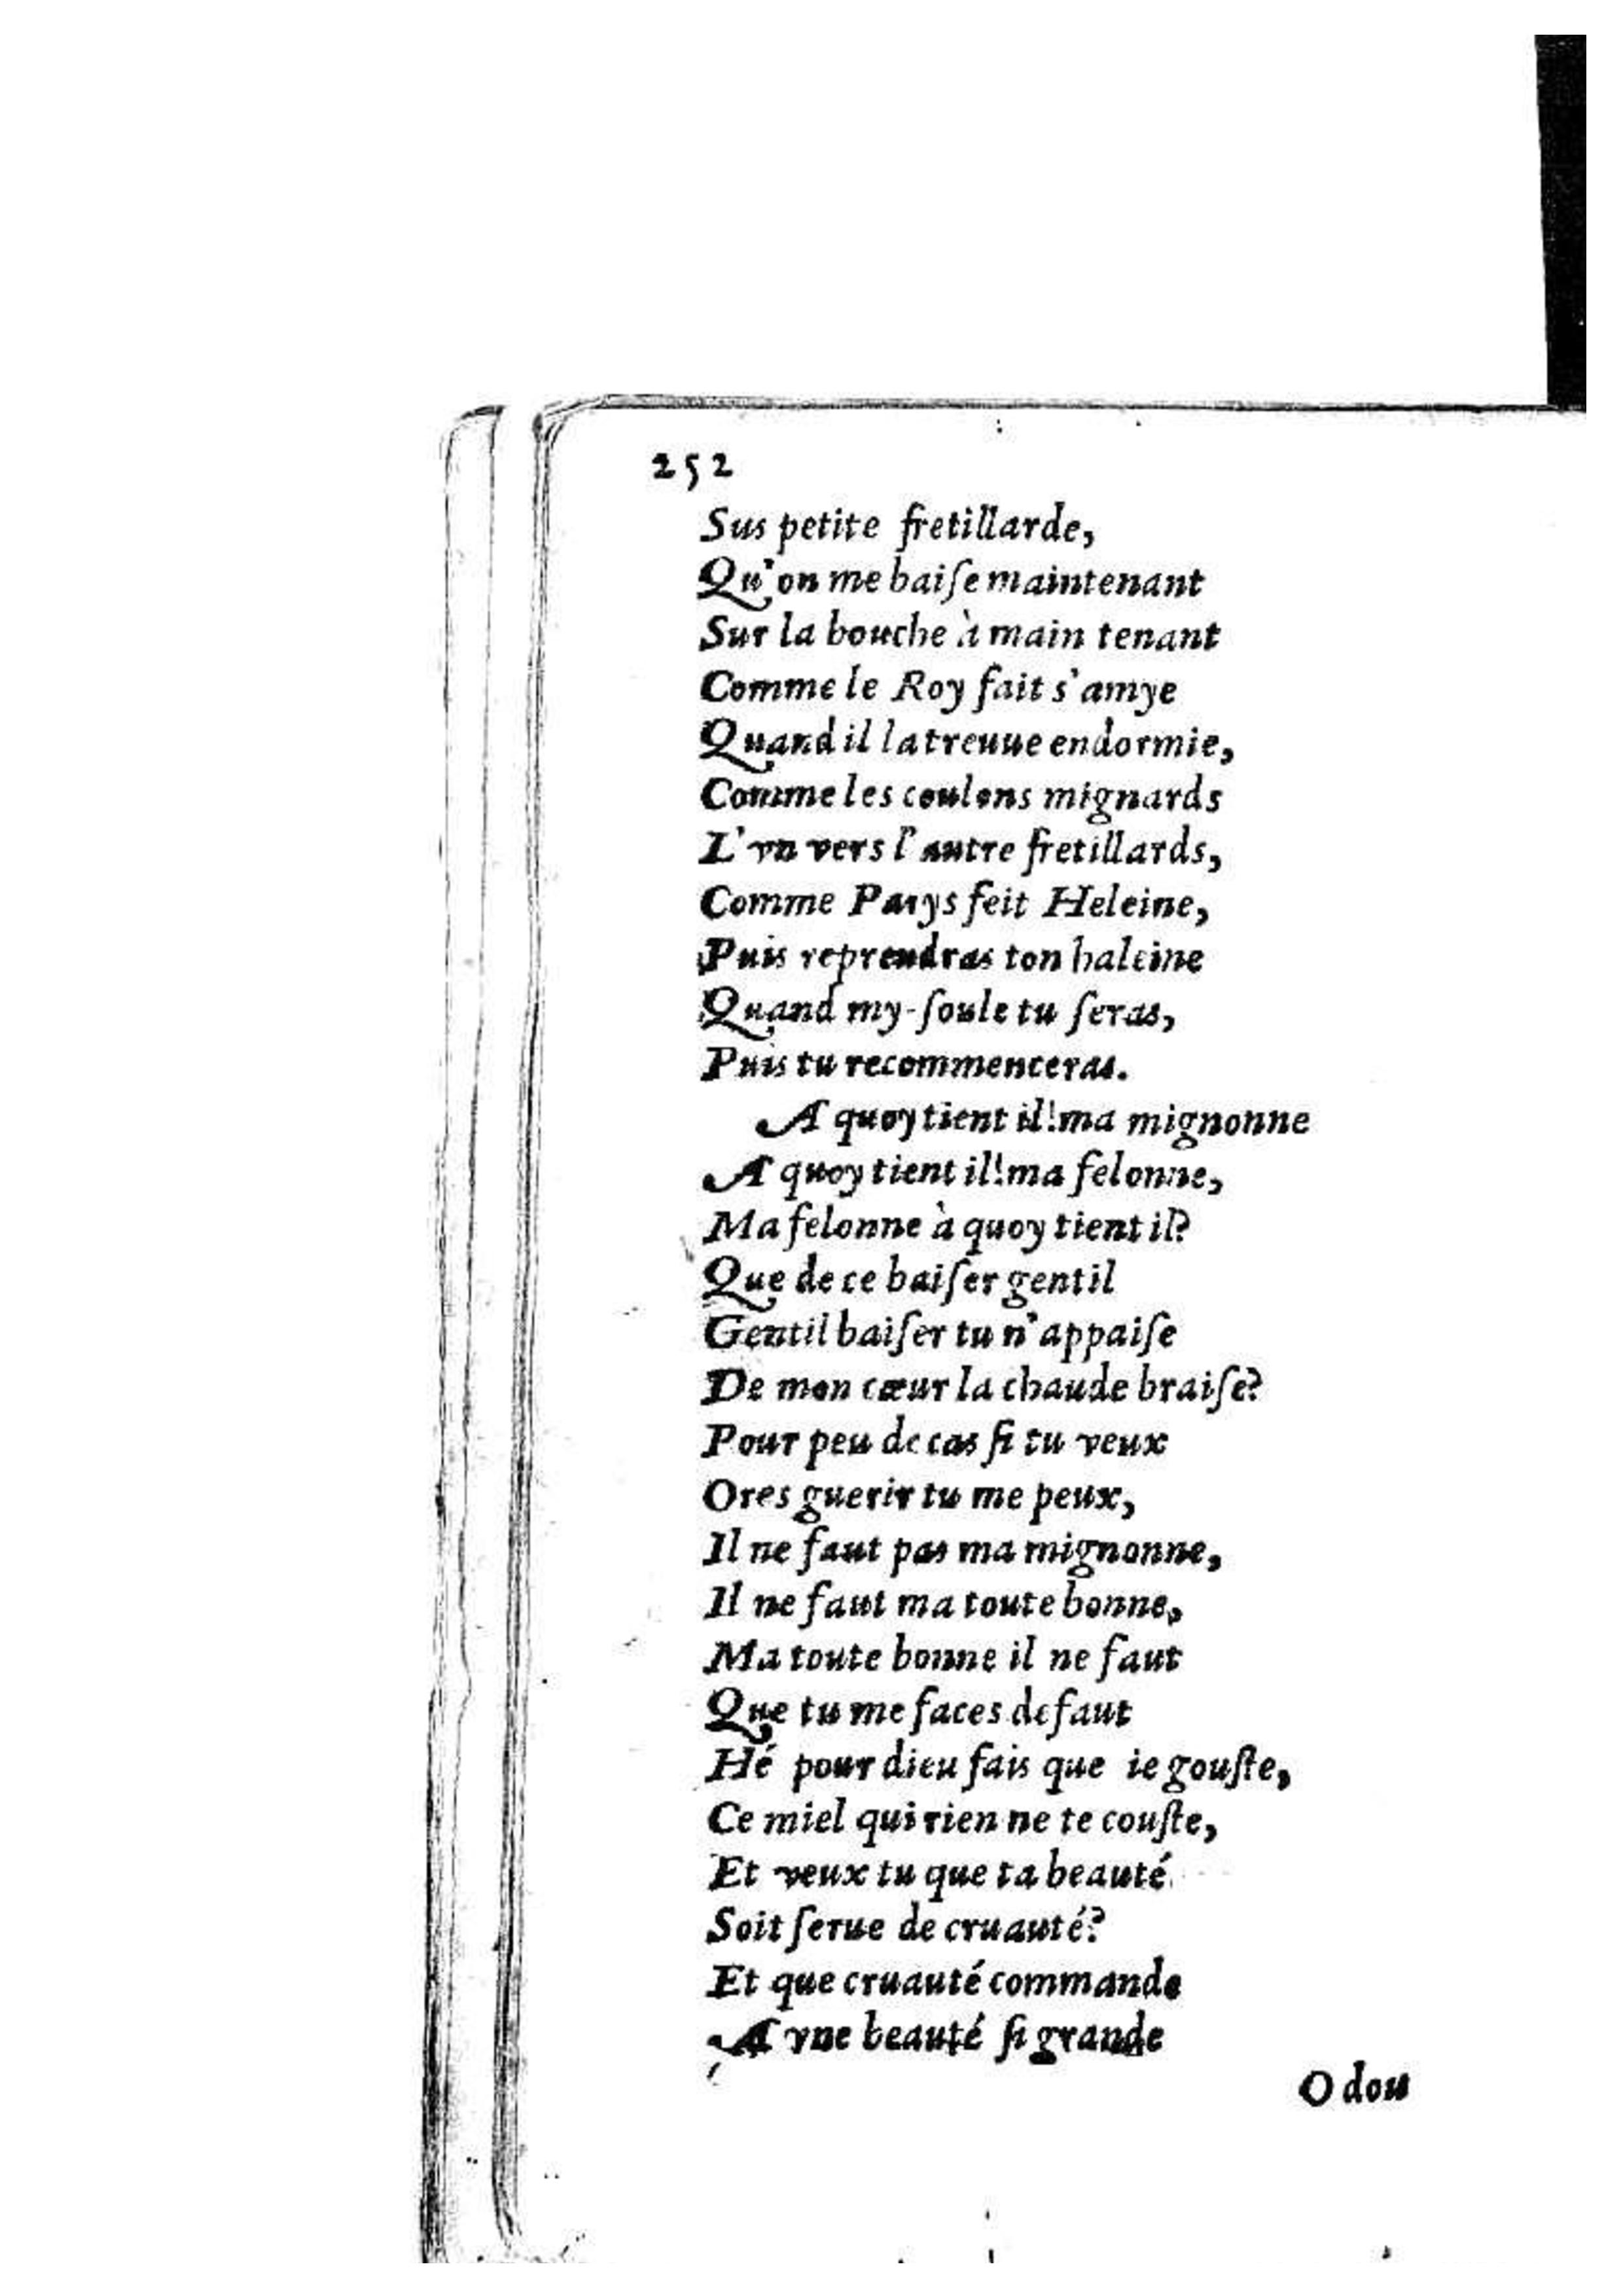 252
Sus petite fretillarde,
Qu'on me baiſe maintenant
Sur la bouche à main tenant
Comme le Roy fait s'amye
Quand il la treuue endormie,
Comme les coulons mignards
L'vn vers l'autre fretillards,
Comme Parys feit Heleine,
Puis reprendras ton haleine
Quand my-ſoule tu ſeras,
Puis tu recommenceras.
A quoy tient il!ma mignonne
A quoy tient il!ma felonne,
Ma felonne à quoy tient il?
Que de ce baiſer gentil
Gentil baiſer tu n'appaiſe
De mon cœur la chaude braiſe?
Pour peu de cas ſi tu veux
Ores guerir tu me peux,
Il ne faut pas ma mignonne,
Il ne faut ma toute bonne,
Ma toute bonne il ne faut
Que tu me faces defaut
Hé pour dieu fais que ie gouſte,
Ce miel qui rien ne te couſte,
Et veux tu que ta beauté
Soit ſerue de cruauté?
Et que cruauté commande
A vne beauté ſi grande
O dou